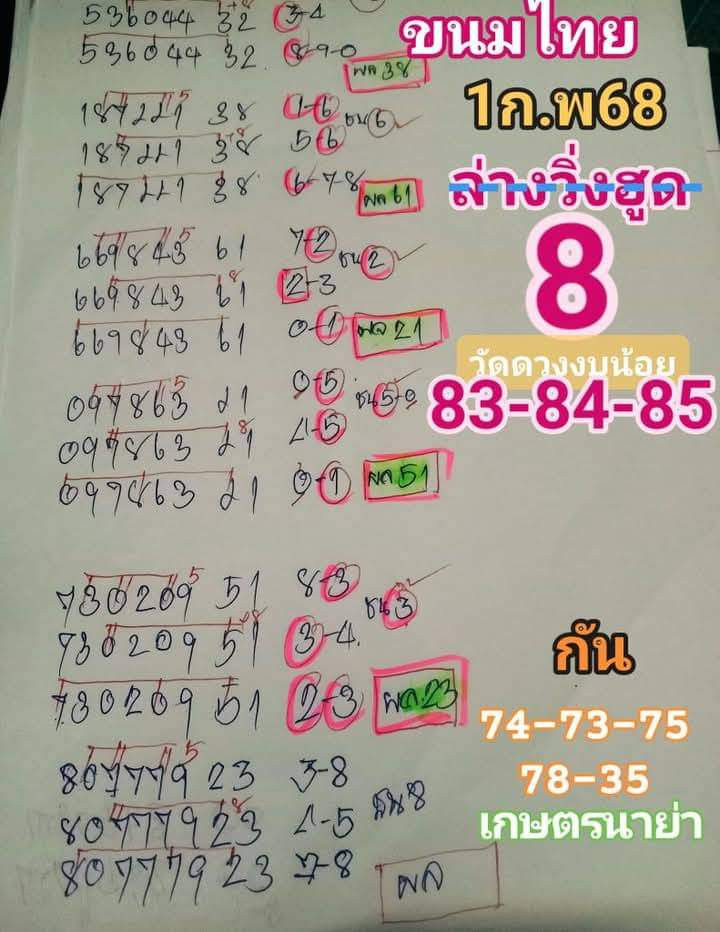 536044 32 3-4
536044 32. 8-9-0
ผล 38
ขนมไทย
1ก.พ68
187221 38 1-6
187221 38 5 6
ชน 6
187221 38 6-7-8
ผล 61
ล่างวิ่งฮูด
8
วัดดวงงบน้อย
83-84-85
669843 61 7-2
ชน 2
669843 61 2-3
669843 61 0-1
ผล 21
097863 21 0-5
ชน 5-9
097863 21 4-5
097863 21 9-1
ผล.51
730209 51 8-3
ชน 3
730209 51 3-4.
730209 51 2-3
ผล.23
กัน
74-73-75
78-35
เกษตรนาย่า
807779 23 3-8
ชน 8
807779 23 4-5
807779 23 7-8
ผล